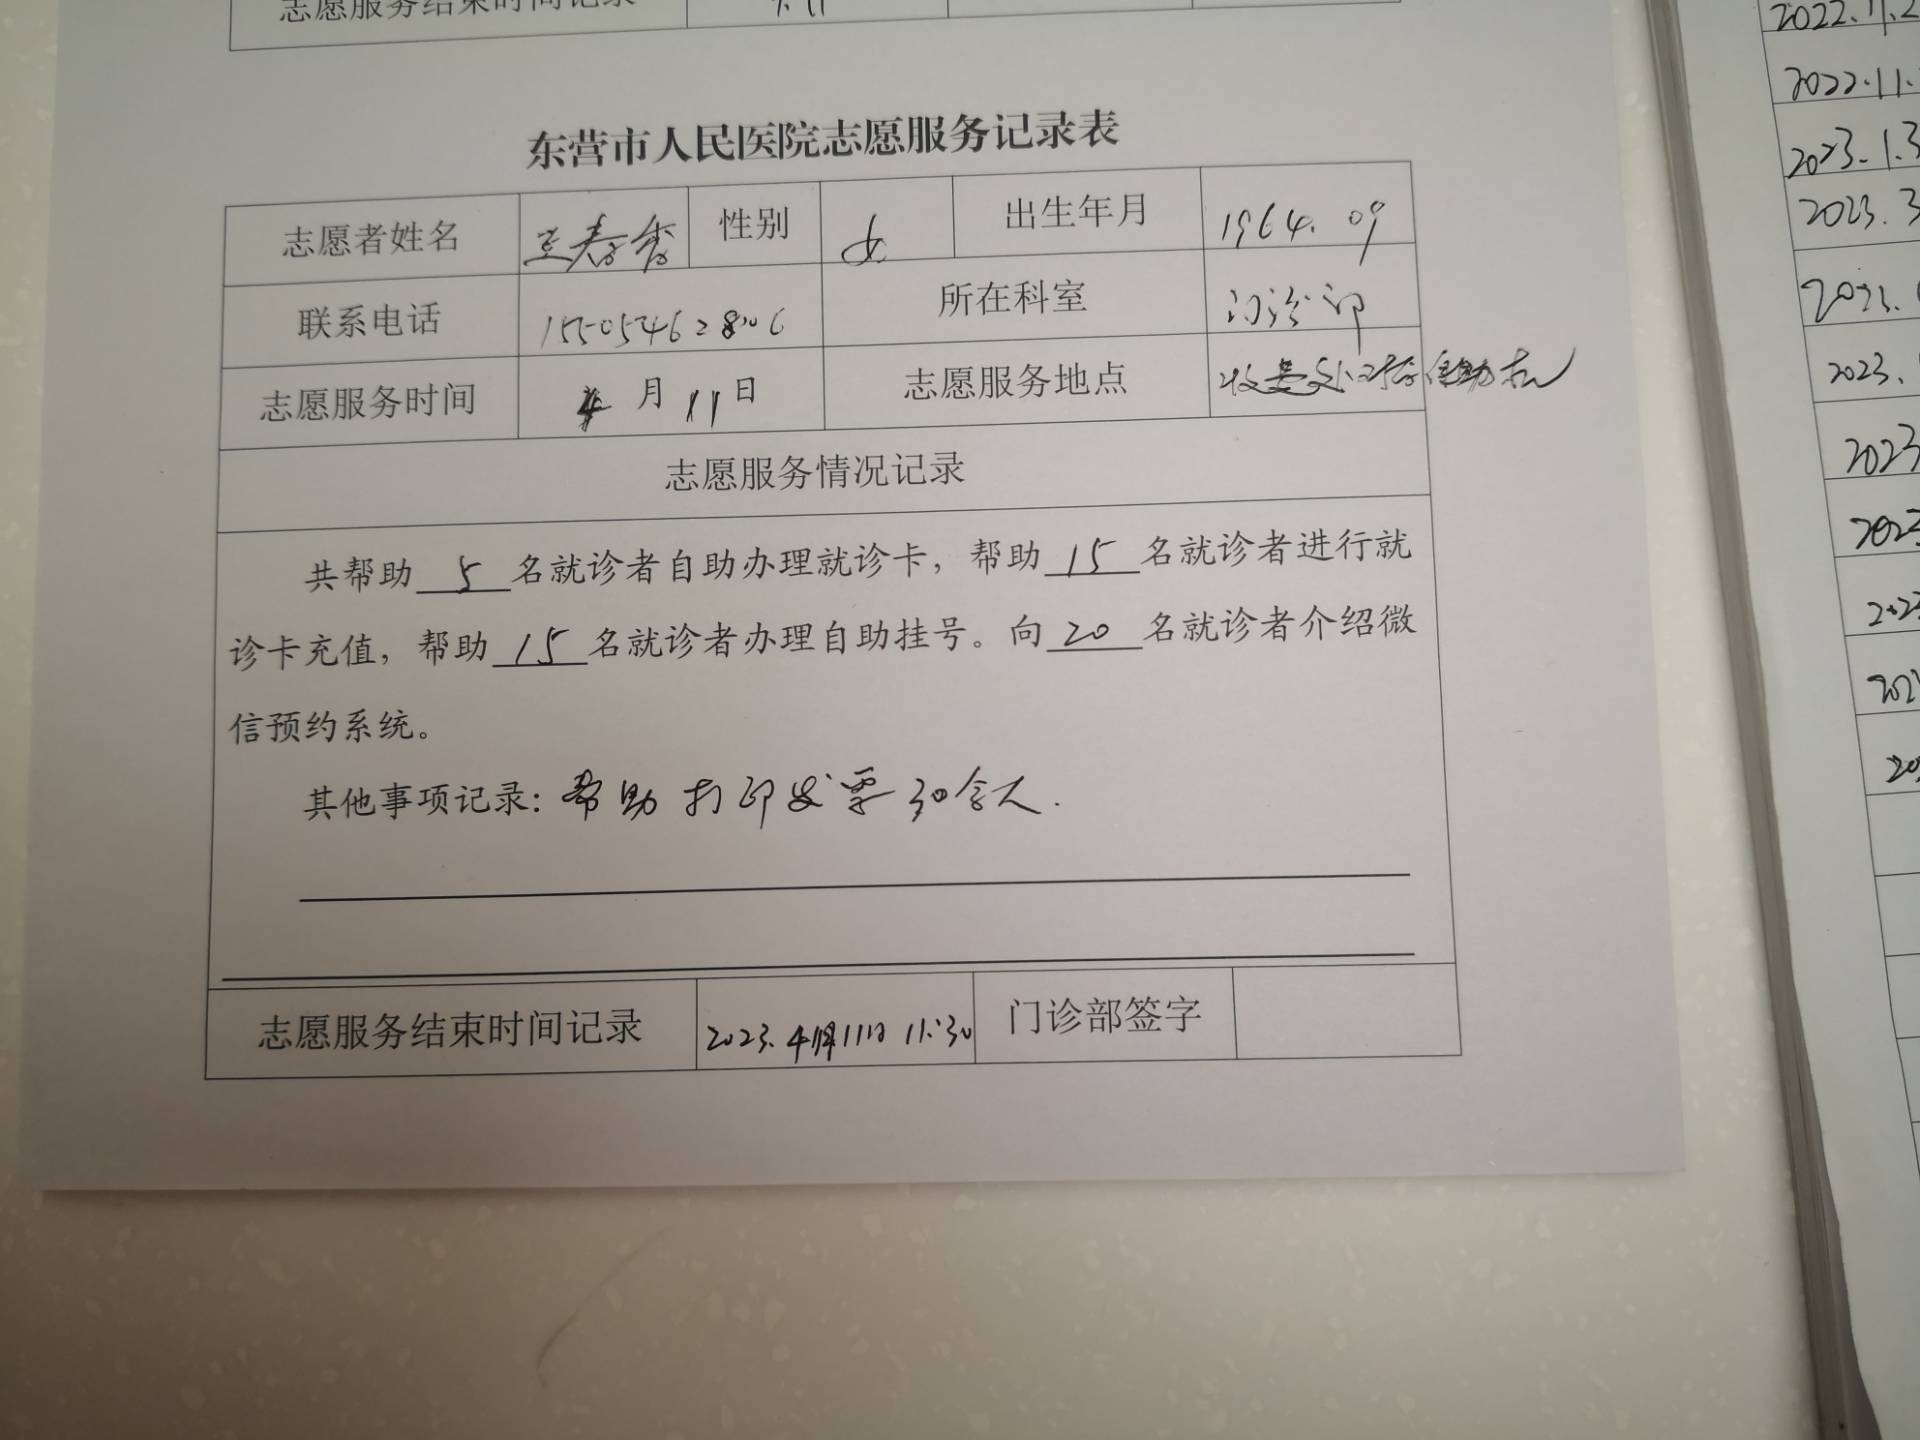 志愿服务结束时间记录
东营市人民医院志愿服务记录表
志愿者姓名 王春香 性别 女 出生年月 1964.09
联系电话 15505462806 所在科室 门诊部
志愿服务时间 4月11日 志愿服务地点 收费处对面自助机
志愿服务情况记录
共帮助 5 名就诊者自助办理就诊卡，帮助 15 名就诊者进行就
诊卡充值，帮助 15 名就诊者办理自助挂号。向 20 名就诊者介绍微
信预约系统。
其他事项记录：帮助打印发票30余人.
志愿服务结束时间记录 2023.4月11日 11:30 门诊部签字
2022.11.2
2022.11.
2023.1.3
2023.3
2023.
2023.
2023
2023
2023
202